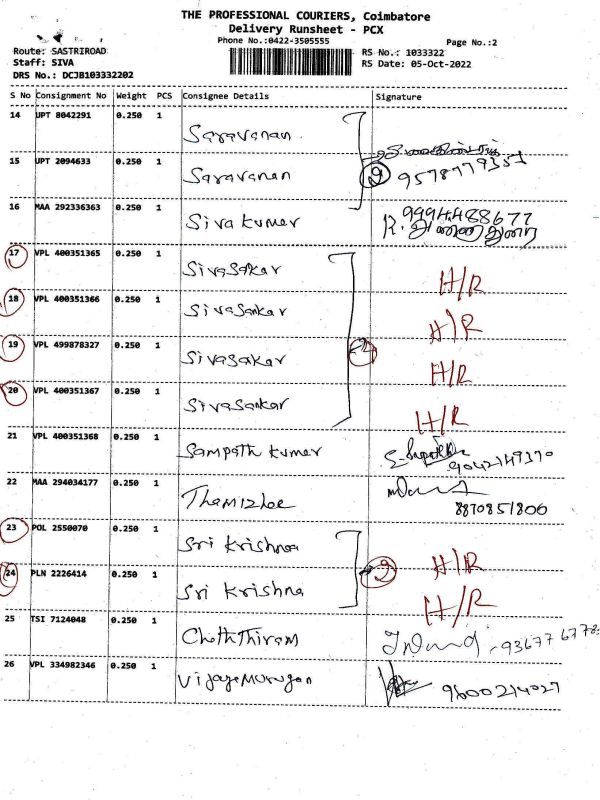 THE PROFESSIONAL COURIERS, Coimbatore
Delivery Runsheet - PCX
Phone No.:0422-3505555
Page No.:2
Route: SASTRIROAD
RS No.: 1033322
Staff: SIVA
RS Date: 05-Oct-2022
DRS No.: DCJB103332202
S No Consignment No Weight PCS Consignee Details Signature
14 UPT 8042291 0.250 1 Saravanan
15 UPT 2094633 0.250 1 Saravanan 2 9578779351
16 MAA 292336363 0.250 1 Siva Kumar 9994488677
17 VPL 400351365 0.250 1 Sivasakar H/R
18 VPL 400351366 0.250 1 Sivasankar H/R
19 VPL 499878327 0.250 1 Sivasakar H/R
20 VPL 400351367 0.250 1 Sivasankar H/R
21 VPL 400351368 0.250 1 Sampath Kumar
22 MAA 294034177 0.250 1 8870851806
23 POL 2550070 0.250 1 Sri Krishna H/R
24 PLN 2226414 0.250 1 Sri Krishna H/R
25 TSI 7124048 0.250 1
26 VPL 334982346 0.250 1 Vijayamurugan 9600214027